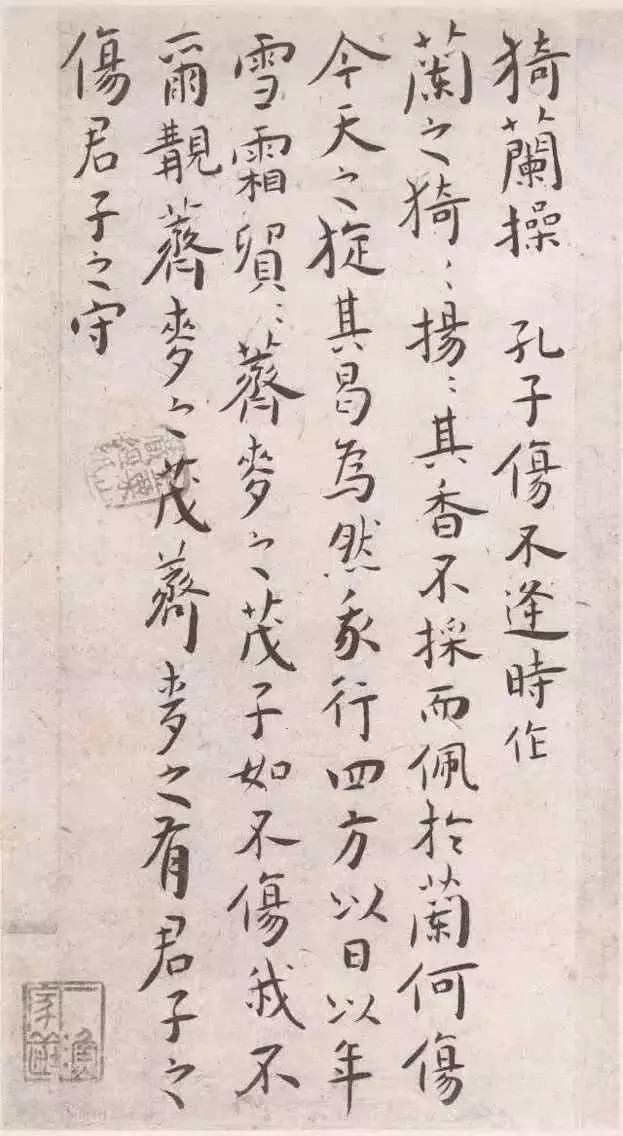 猗蘭操　孔子傷不逢時作
蘭之猗〻揚〻其香不採而佩於蘭何傷
今天之旋其曷為然我行四方以日以年
雪霜貿〻薺麥之茂子如不傷我不
爾覯薺麥之茂薺麥之有君子之
傷君子之守